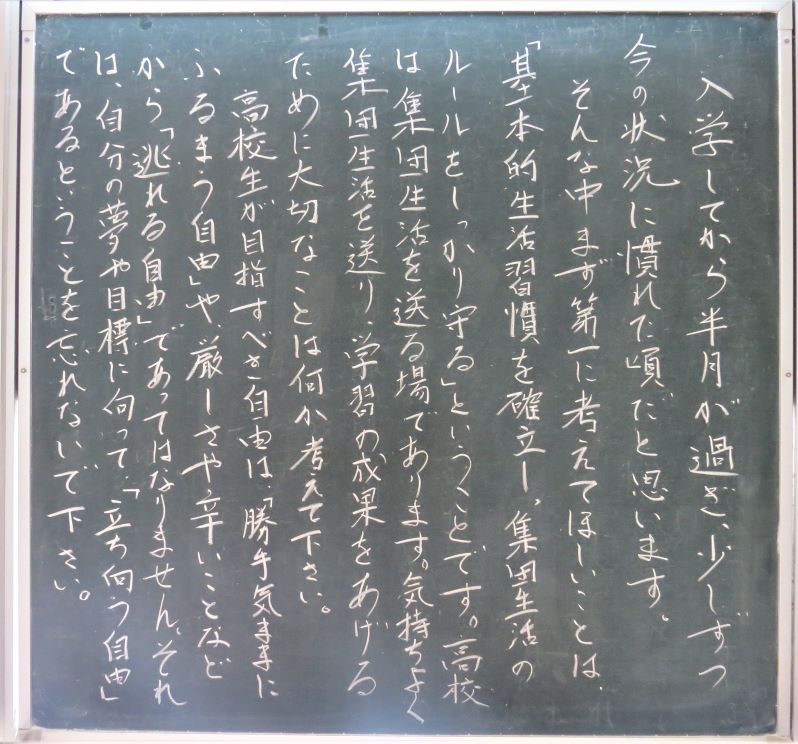 入学してから半月が過ぎ、少しずつ
今の状況に慣れた頃だと思います。
そんな中まず第一に考えてほしいことは、
「基本的生活習慣を確立し、集団生活の
ルールをしっかり守る」ということです。高校
は集団生活を送る場であります。気持ちよく
集団生活を送り、学習の成果をあげる
ために大切なことは何か考えて下さい。
高校生が目指すべき自由は、「勝手気ままに
ふるまう自由」や、厳しさや辛いことなど
から「逃れる自由」であってはなりません。それ
は、自分の夢や目標に向って、「立ち向う自由」
であるということを忘れないで下さい。